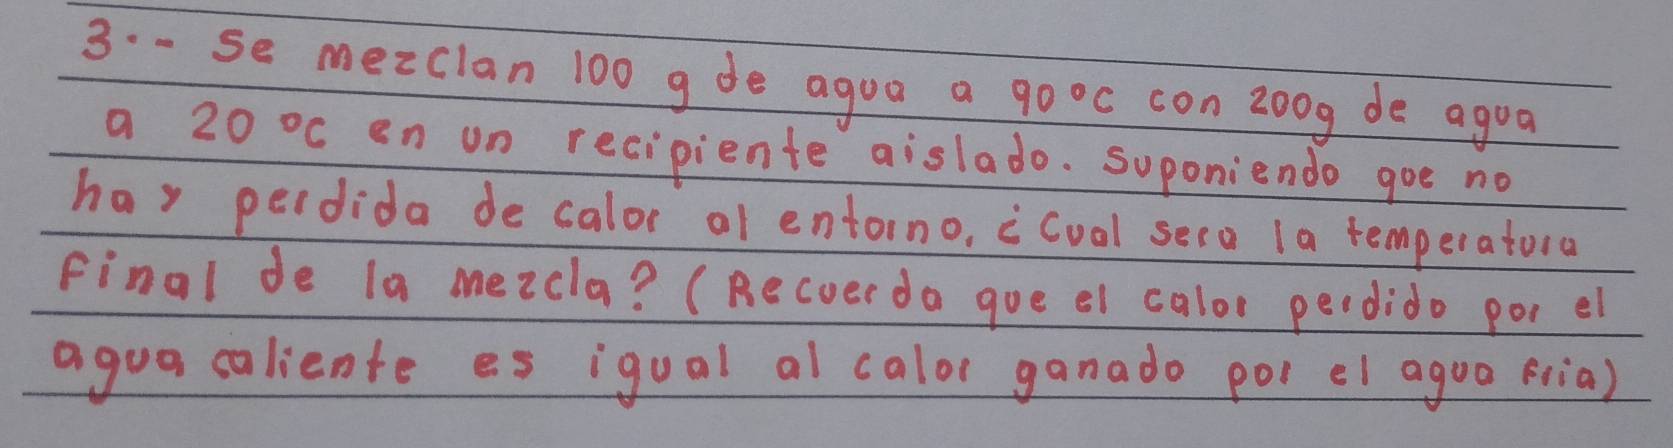 3.- Se mezclan 100 g de agua a 90°C con 200g de agua
a 20 °C en un recipiente aislado. Suponiendo que no
hay perdida de calor al entorno, ¿Cual sera la temperatura
Final de la mezcla? (Recuerda que el calor perdido por el
agua caliente es igual al calor ganado por el agua Fria)